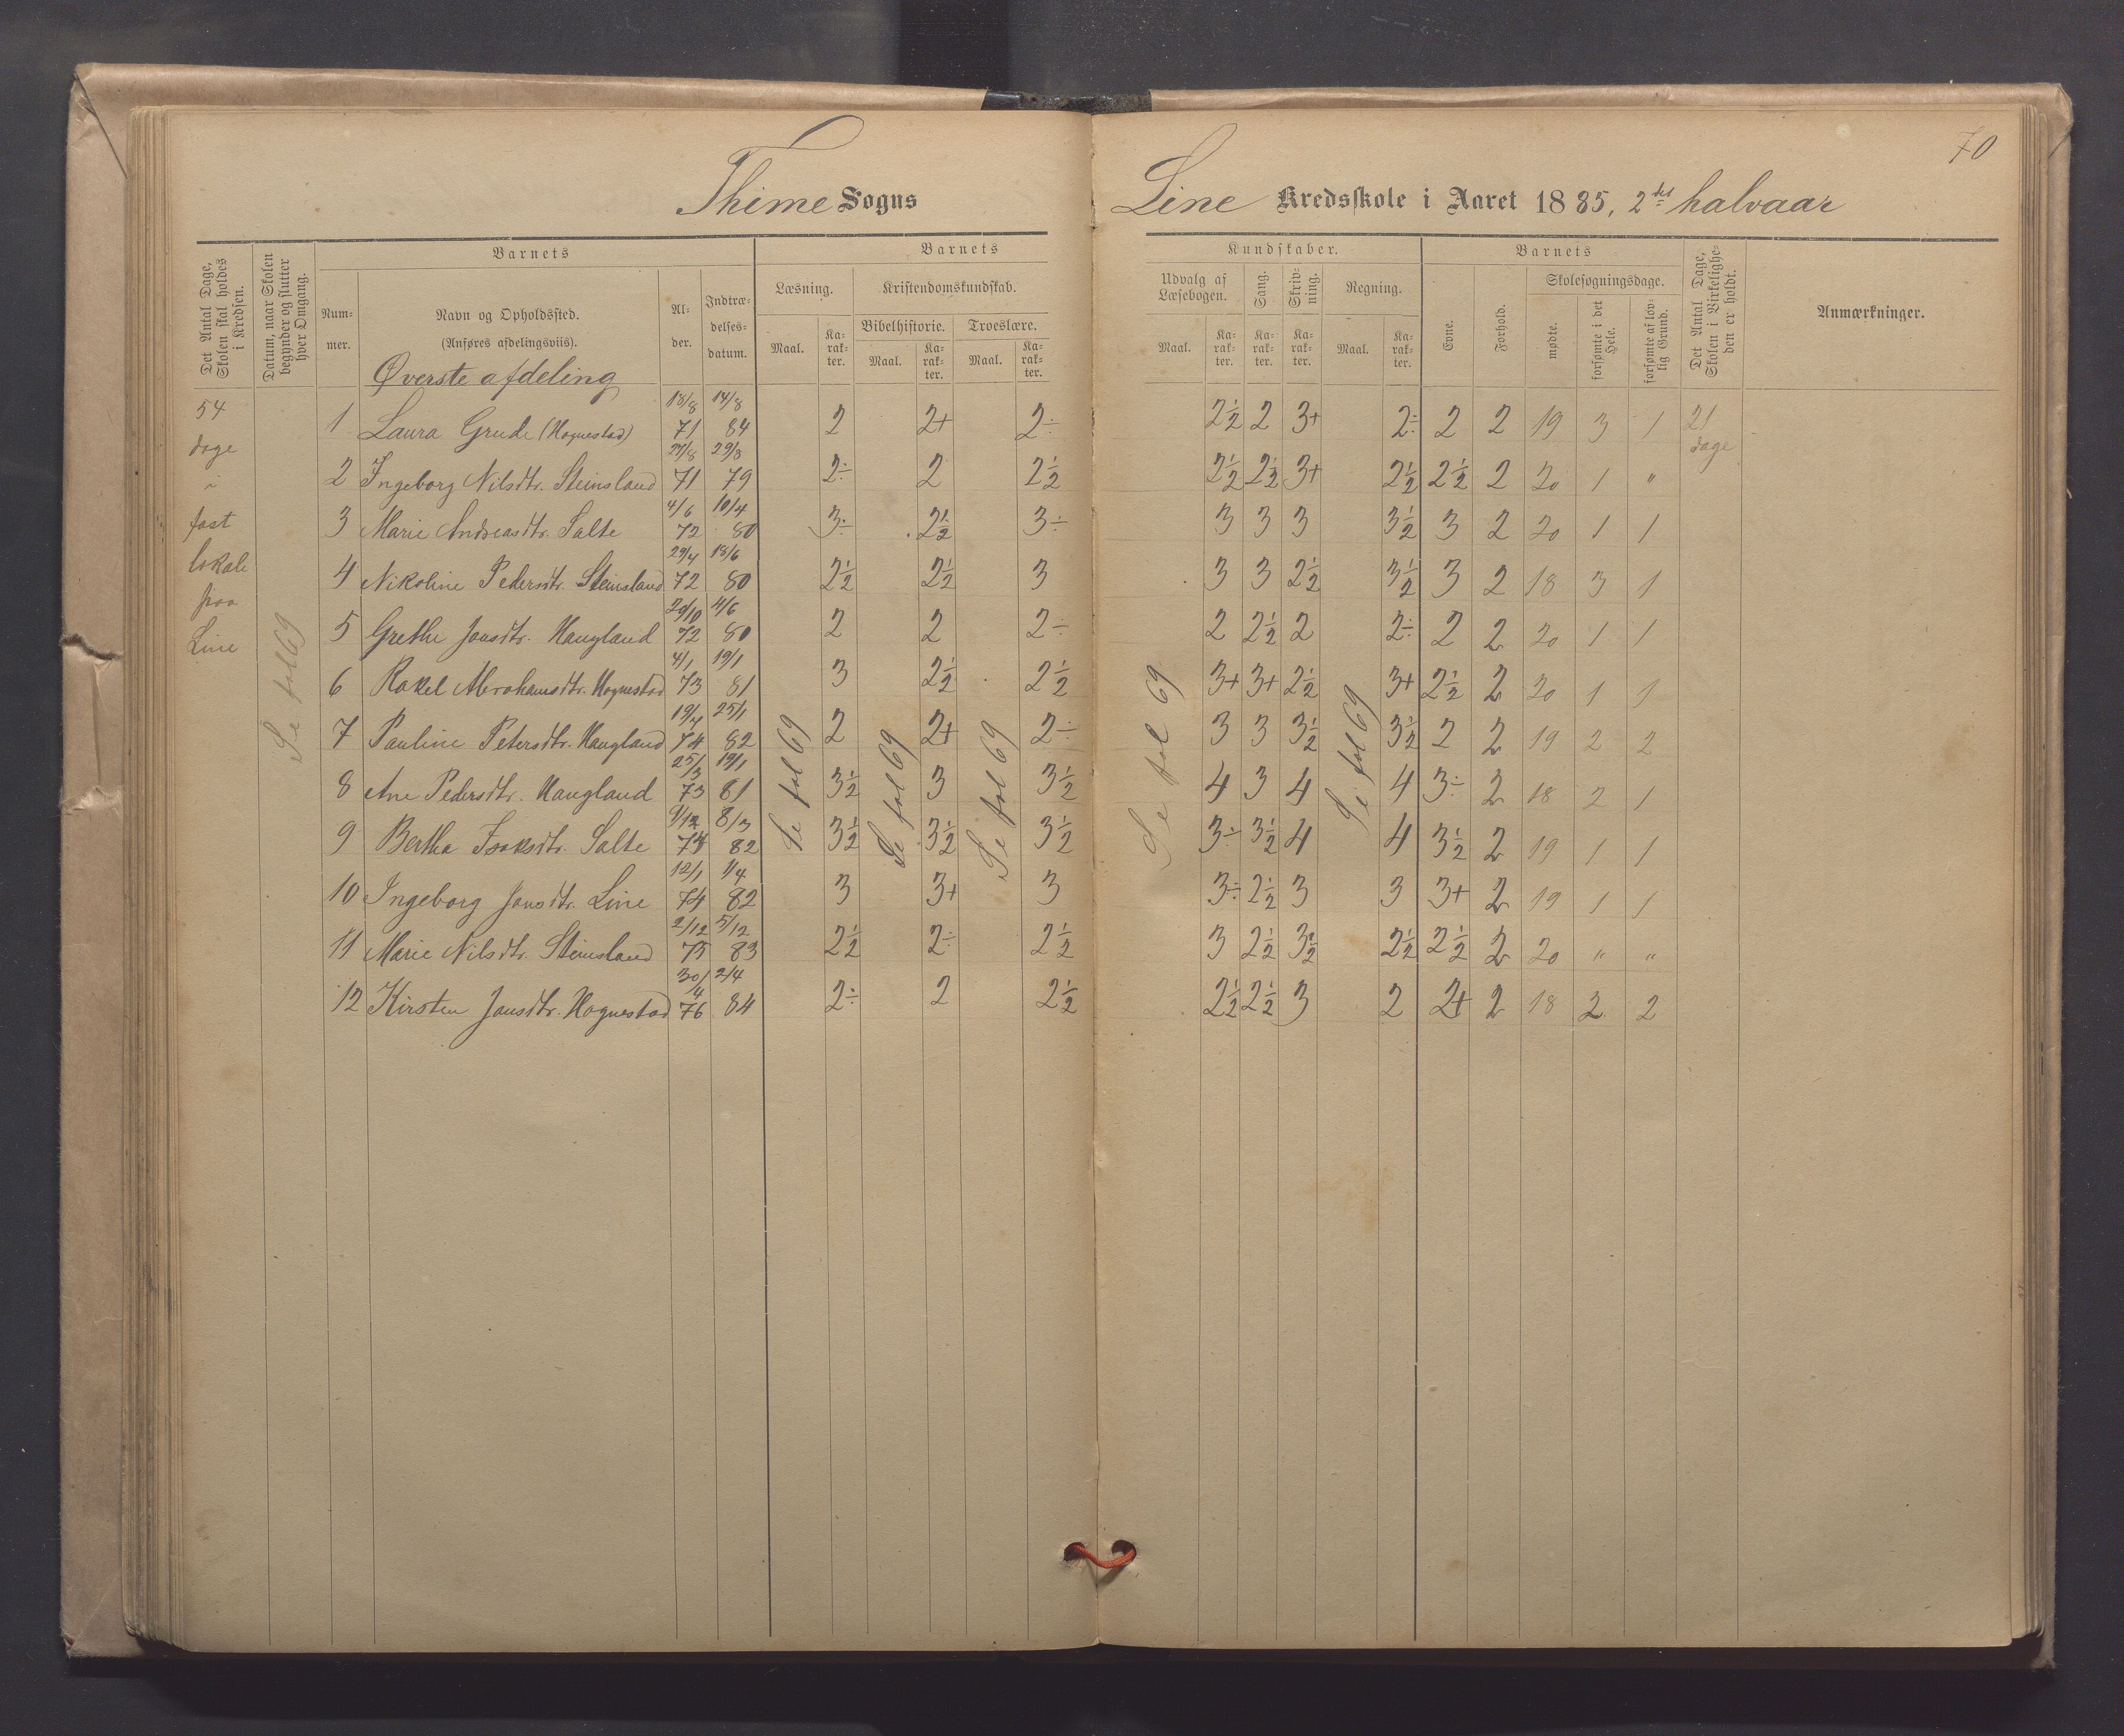 70
Thime Sogns
Line Kredsskole i Aaret 1885, 2det halvaar
Det Antal Dage, Skolen skal holdes i Kredsen.
Datum, naar Skolen begynder og slutter hver Omgang.
Barnets
Nummer.
Navn og Opholdssted.
(Anføres afdelingsviis).
Øverste afdeling
Alder.
Indtrædelsesdatum.
Barnets
Læsning.
Maal. Karakter.
Kristendomskundskab.
Bibelhistorie. Troeslære.
Maal. Karakter. Maal. Karakter.
Kundskaber.
Udvalg af Læsebogen.
Maal. Karakter.
Sang. Karakter.
Skrivning. Karakter.
Regning.
Maal. Karakter.
Barnets
Evne. Forhold.
Skolesøgningsdage.
mødte. forsømte i det Hele. forsømte af lovlig Grund.
Det Antal Dage, Skolen i Virkeligheden er holdt.
Anmærkninger.
54 dage i fast lokale paa Line
Se fol 69
1 Laura Grude (Hognestad) 18/8 71 14/8 84 2 2+ 2÷ 2½ 2 3+ 2÷ 2 2 19 3 1 21 dage
2 Ingeborg Nilsdtr. Steinsland 27/8 71 29/8 79 2÷ 2 2½ 2½ 2½ 3+ 2½ 2½ 2 20 1 "
3 Marie Andreasdtr. Salte 4/6 72 10/4 80 3÷ 2½ 3÷ 3 3 3 3½ 3 2 20 1 1
4 Nikoline Pedersdtr. Steinsland 29/4 72 18/6 80 2½ 2½ 3 3 3 2½ 3½ 3 2 18 3 1
5 Grethe Jonsdtr. Haugland 29/10 72 4/6 80 2 2 2÷ 2 2½ 2 2÷ 2 2 20 1 1
6 Rakel Abrahamsdtr. Hognestad 4/1 73 19/1 81 3 2½ 2½ 3+ 3+ 2½ 3+ 2½ 2 20 1 1
7 Pauline Petersdtr. Haugland 19/4 74 25/1 82 2 2+ 2÷ 3 3 3½ 3½ 2 2 19 2 2
8 Ane Pedersdtr. Haugland 25/3 73 19/1 81 3½ 3 3½ 4 3 4 4 3÷ 2 18 2 1
9 Bertha Isaksdtr. Salte 9/12 73 8/3 82 3½ 3½ 3½ 3÷ 3½ 4 4 3½ 2 19 1 1
10 Ingeborg Jonsdtr. Line 12/1 74 1/4 82 3 3+ 3 3÷ 2½ 3 3 3+ 2 19 1 1
11 Marie Nilsdtr. Steinsland 2/12 75 5/12 83 2½ 2÷ 2½ 3 2½ 3½ 2½ 2½ 2 20 " "
12 Kirsten Jonsdtr. Hognestad 30/4 76 2/4 84 2÷ 2 2½ 2½ 2½ 3 2 2+ 2 18 2 2
Se fol 69
Se fol 69
Se fol 69
Se fol 69
Se fol 69